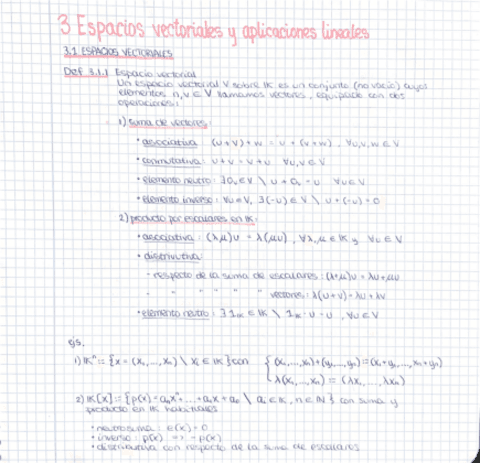 3 Espacios vectoriales y aplicaciones lineales
3.1 ESPACIOS VECTORIALES
Def 3.1.1 Espacio vectorial
Un espacio vectorial V sobre IK es un conjunto (no vacío) cuyos
elementos u,v ∈ V llamamos vectores, equipado con dos
operaciones:
1) suma de vectores:
• asociativa: (u+v)+w = u+(v+w), ∀u,v,w ∈ V
• conmutativa: u+v = v+u ∀u,v ∈ V
• elemento neutro: ∃0ᵥ∈V \ u+0ᵥ = u ∀u∈V
• elemento inverso: ∀u∈V, ∃(-u)∈V \ u+(-u) = 0
2) producto por escalares en IK:
• asociativa: (λμ)u = λ(μu), ∀λ,μ ∈ IK y ∀u ∈ V
• distributiva:
- respecto de la suma de escalares: (λ+μ)u = λu+μu
- " " " " " vectores: λ(u+v) = λu+λv
• elemento neutro: ∃1ᵢₖ ∈ IK \ 1ᵢₖ·u = u, ∀u∈V
ejs.
1) IKⁿ := {x = (x₁,...,xₙ) \ xᵢ ∈ IK} con { (x₁,...,xₙ)+(y₁,...,yₙ) := (x₁+y₁,...,xₙ+yₙ)
λ(x₁,...,xₙ) = (λx₁,...,λxₙ)
2) IK[x] := {p(x) = aₙxⁿ+...+a₁x+a₀ \ aᵢ∈IK, n∈IN} con suma y
producto en IK habituales
• neutro suma: e(x) = 0
• inverso: p(x) => -p(x)
• distributiva con respecto de la suma de escalares